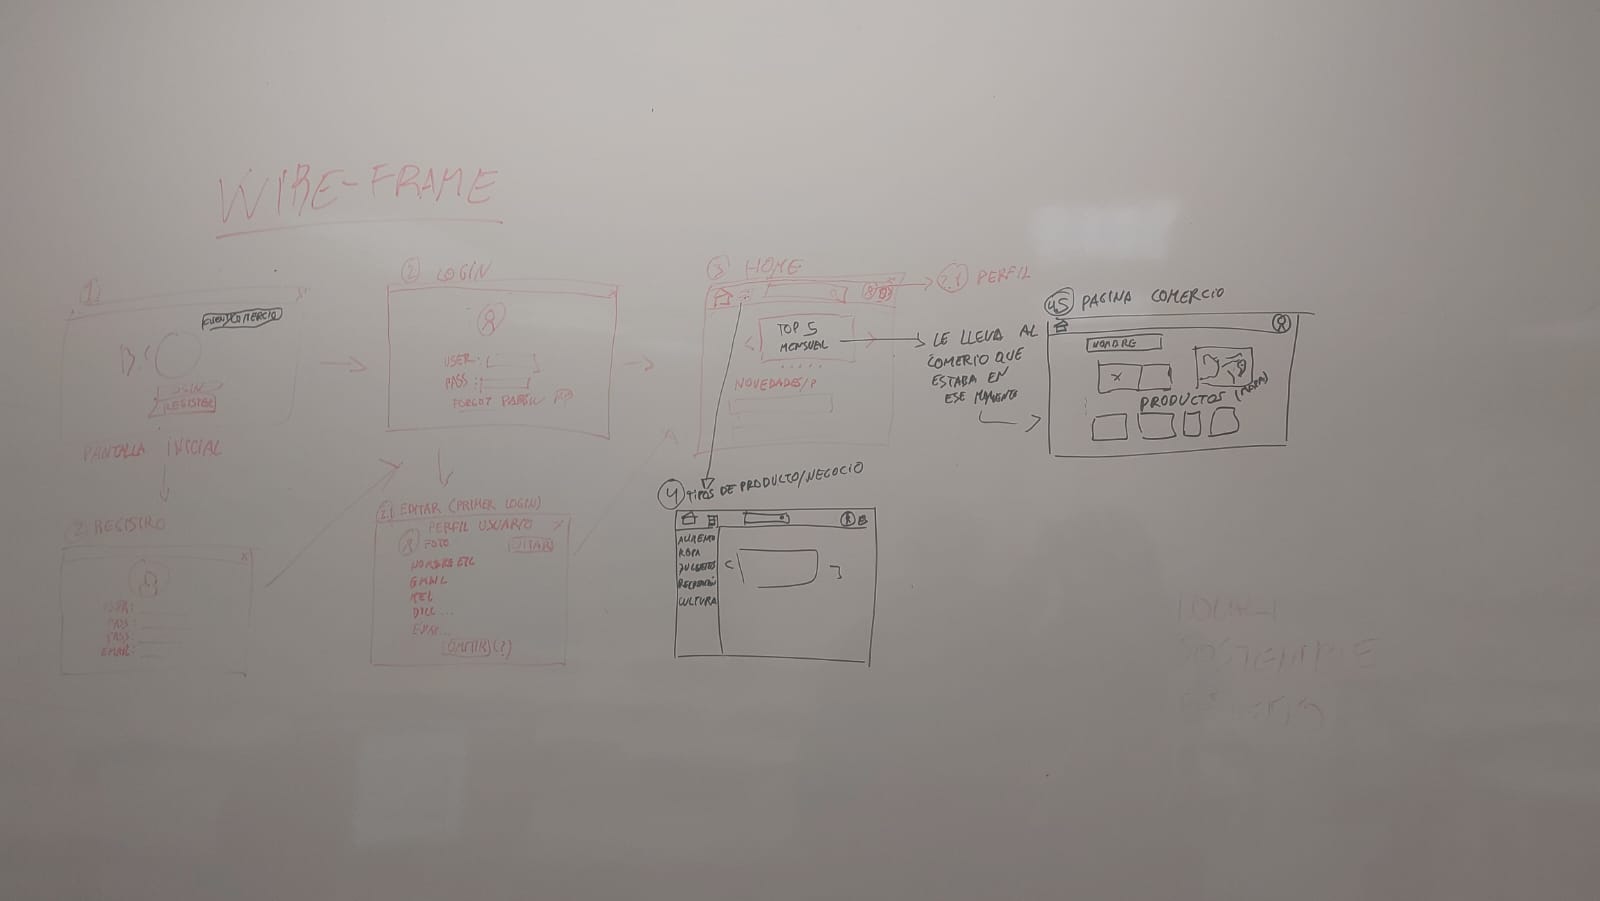 WIRE-FRAME
1
CUENTA COMERCIO
B:(
LOGIN
REGISTER
PANTALLA INICIAL
2 REGISTRO
USER:
PASS:
PASS:
EMAIL:
2 LOGIN
USER:
PASS:
FORGOT
2.1 EDITAR (PRIMER LOGIN)
PERFIL USUARIO X
FOTO
NOMBRE ETC
GMAIL
TEL
DIRC...
(?)
3 HOME
2.1 PERFIL
TOP 5
MENSUAL
NOVEDADES/P
LE LLEVA AL
COMERIO QUE
ESTABA EN
ESE MOMENTO
4 TIPOS DE PRODUCTO/NEGOCIO
ROPA
JUGUETES
RECREACIÓN
CULTURA
4.5 PAGINA COMERCIO
NOMBRE
X
(MAPA)
PRODUCTOS